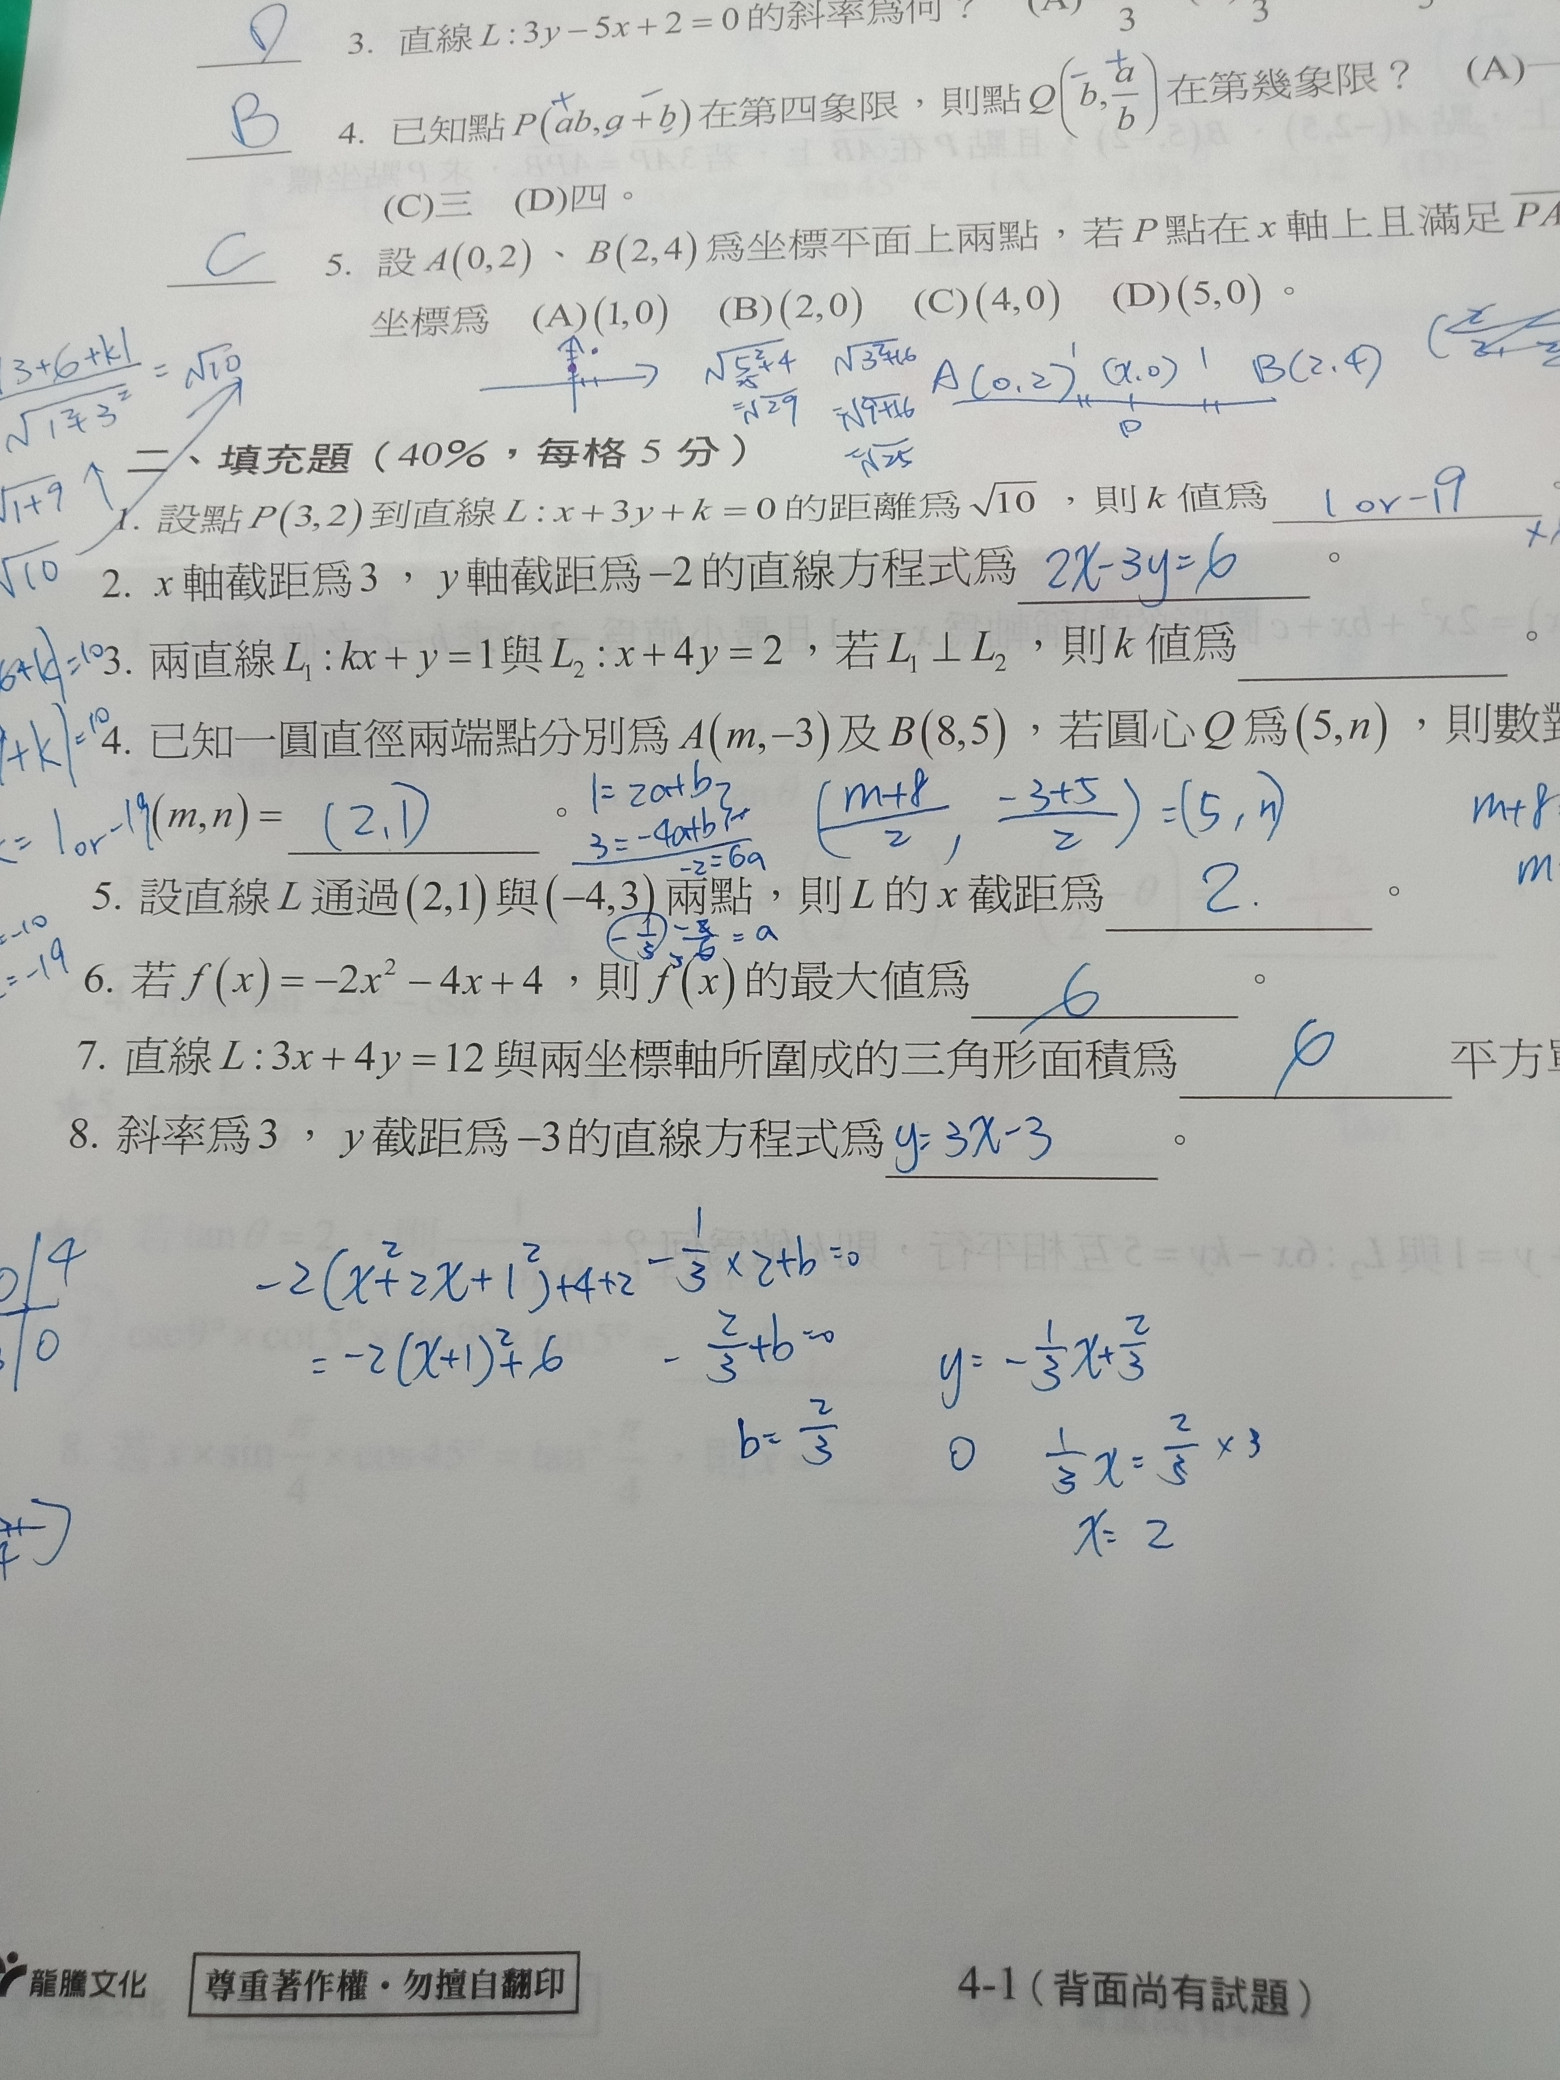 D
3. 直線 L : 3y − 5x + 2 = 0 的斜率為何？ (A) 3 3
B
4. 已知點 P(ab, a + b) 在第四象限，則點 Q(b, a/b) 在第幾象限？ (A)一
+ − − +
(C)三 (D)四。
C
5. 設 A(0,2)、B(2,4) 為坐標平面上兩點，若 P 點在 x 軸上且滿足 PA
坐標為 (A)(1,0) (B)(2,0) (C)(4,0) (D)(5,0)。
|3+6+k| / √1²+3² = √10
√5²+4 √3²+16 A(0,2) 1 (x,0) 1 B(2,4)
=√29 =√9+16 P
=√25
√1+9
√10
二、填充題（40%，每格 5 分）
1. 設點 P(3,2) 到直線 L : x + 3y + k = 0 的距離為 √10，則 k 值為 1 or -19 。
2. x 軸截距為 3，y 軸截距為 −2 的直線方程式為 2x-3y=6 。
6+k|=10
3. 兩直線 L₁ : kx + y = 1 與 L₂ : x + 4y = 2，若 L₁ ⊥ L₂，則 k 值為 。
+k|=10
4. 已知一圓直徑兩端點分別為 A(m,−3) 及 B(8,5)，若圓心 Q 為 (5,n)，則數對
= 1 or -19
(m,n) = (2,1) 。
1=2a+b
3=-4a+b
-2=6a
(m+8/2, -3+5/2) = (5,n)
m+8
5. 設直線 L 通過 (2,1) 與 (−4,3) 兩點，則 L 的 x 截距為 2. 。
= a
=-10
=-19
6. 若 f(x) = −2x² − 4x + 4，則 f(x) 的最大值為 6 。
7. 直線 L : 3x + 4y = 12 與兩坐標軸所圍成的三角形面積為 6 平方單
8. 斜率為 3，y 截距為 −3 的直線方程式為 y=3x-3 。
0 | 4
0
-2(x²+2x+1²)+4+2
=-2(x+1)²+6
-1/3×2+b=0
-2/3+b=0
b=2/3
y=-1/3x+2/3
0 1/3x=2/3×3
x=2
龍騰文化 尊重著作權・勿擅自翻印 4-1（背面尚有試題）